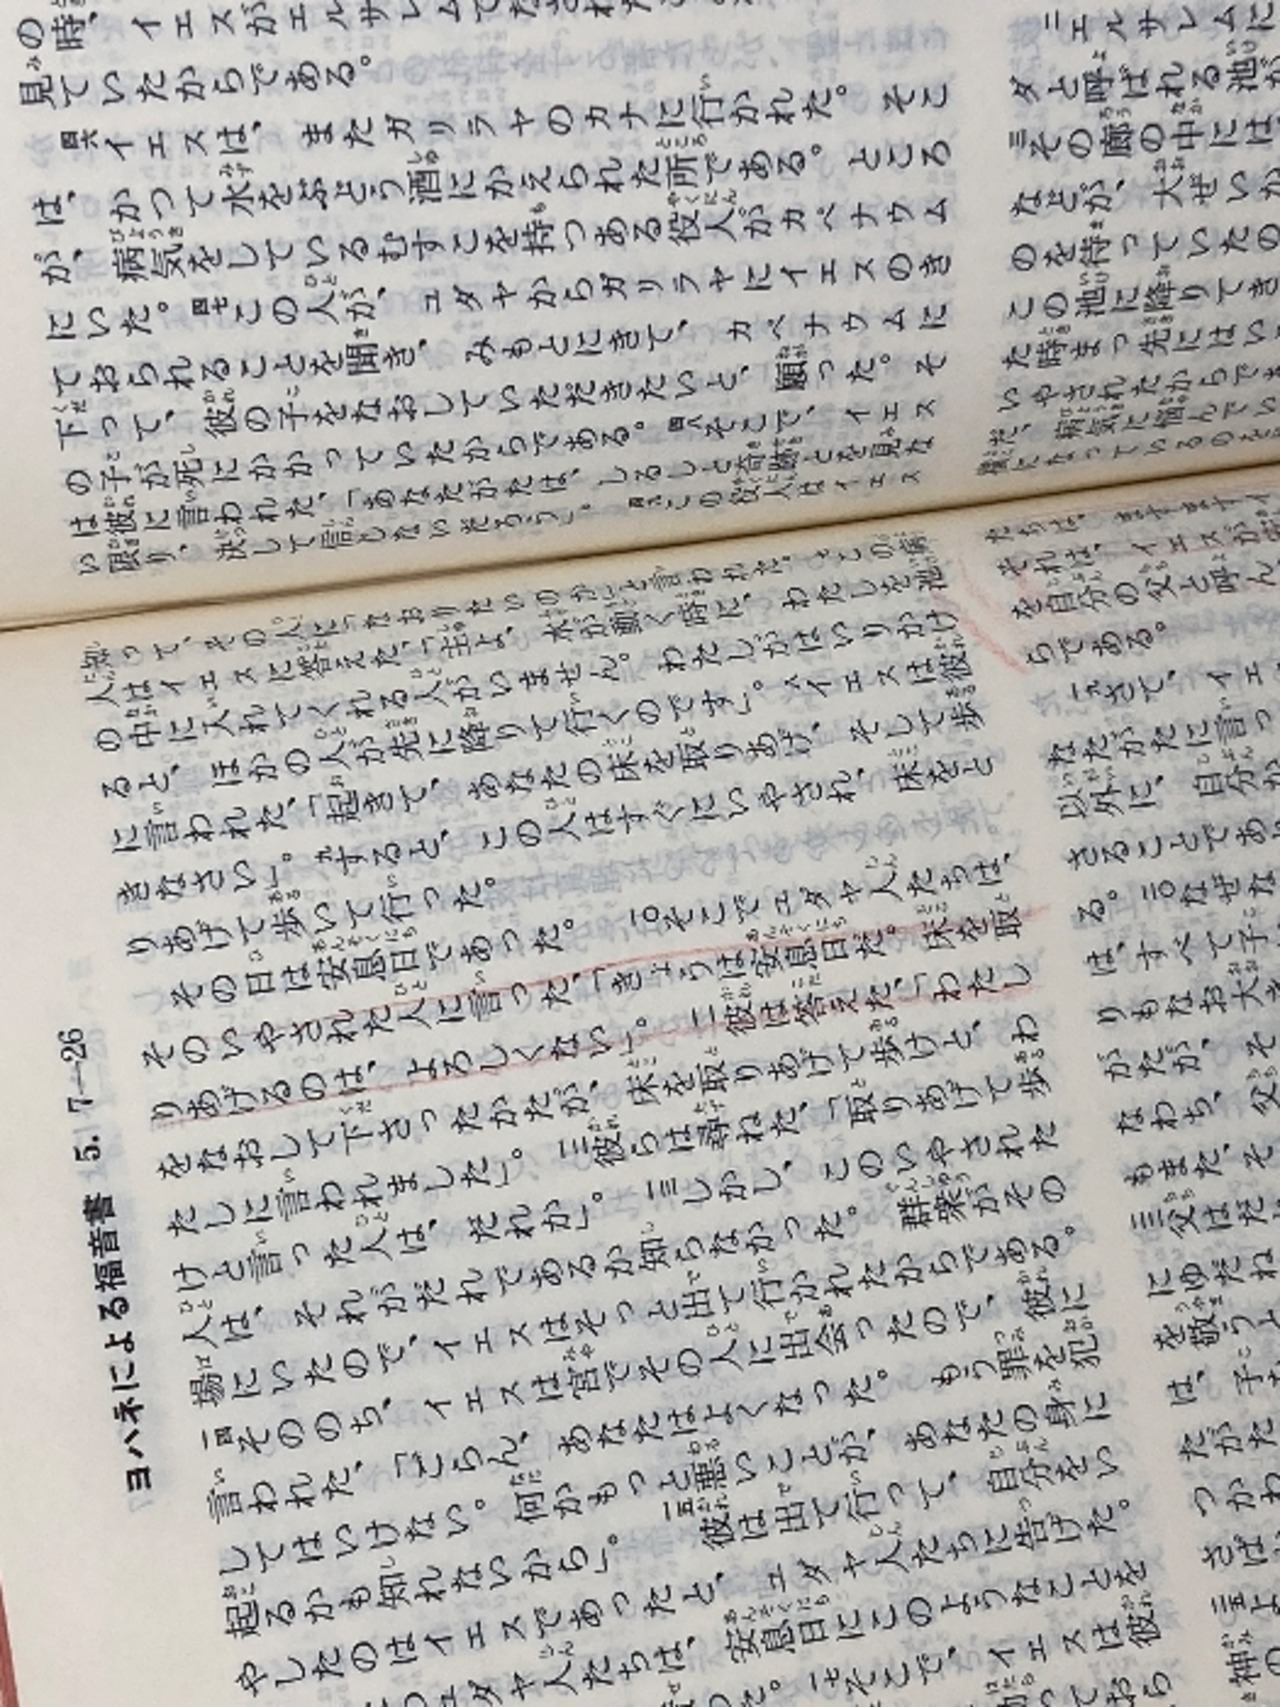 の時、イエスがエルサレムでなされたこ
見ていたからである。
四六イエスは、またガリラヤのカナに行かれた。そこ
は、かつて水をぶどう酒にかえられた所である。ところ
が、病気をしているむすこを持つある役人がカペナウム
にいた。四七この人が、ユダヤからガリラヤにイエスのき
ておられることを聞き、みもとにきて、カペナウムに
下って、彼の子をなおしていただきたいと、願った。そ
の子が死にかかっていたからである。四八そこで、イエス
は彼に言われた、「あなたがたは、しるしと奇跡とを見な
い限り、決して信じないだろう」。四九この役人はイエス
ニエルサレムに
タと呼ばれる池が
三その廊の中には
などが、大ぜいか
のを待っていたの
この池に降りてき
た時まっ先にはい
いやされたからであ
だ、病気に悩んでい
横になっているのを
ヨハネによる福音書 5. 7—26
知って、その人に「なおりたいのか」と言われた。七この病
人はイエスに答えた、「主よ、水が動く時に、わたしを池
の中に入れてくれる人がいません。わたしがはいりかけ
ると、ほかの人が先に降りて行くのです」。八イエスは彼
に言われた、「起きて、あなたの床を取りあげ、そして歩
きなさい」。九すると、この人はすぐにいやされ、床をと
りあげて歩いて行った。
その日は安息日であった。一〇そこでユダヤ人たちは、
そのいやされた人に言った、「きょうは安息日だ。床を取
りあげるのは、よろしくない」。一一彼は答えた、「わたし
をなおして下さったかたが、床を取りあげて歩けと、わ
たしに言われました」。一二彼らは尋ねた、「取りあげて歩
けと言った人は、だれか」。一三しかし、このいやされた
人は、それがだれであるか知らなかった。群衆がその
場にいたので、イエスはそっと出て行かれたからである。
一四そののち、イエスは宮でその人に出会ったので、彼に
言われた、「ごらん、あなたはよくなった。もう罪を犯
してはいけない。何かもっと悪いことが、あなたの身に
起るかも知れないから」。一五彼は出て行って、自分をい
やしたのはイエスであったと、ユダヤ人たちに告げた。
ユダヤ人たちは、安息日にこのようなことを
一七そこで、イエスは彼
ておら
たちは、ますますイ
それは、イエスが安
を自分の父と呼ん
らである。
一九さて、イエ
なたがたに言っ
以外に、自分か
さることであ
る。二〇なぜな
は、すべて子
りもなお大き
がたが、そ
なわち、父
もまた、そ
三父はだ
にゆだね
を敬うよ
は、子
たがた
つかわ
さばい
二五よ
神の